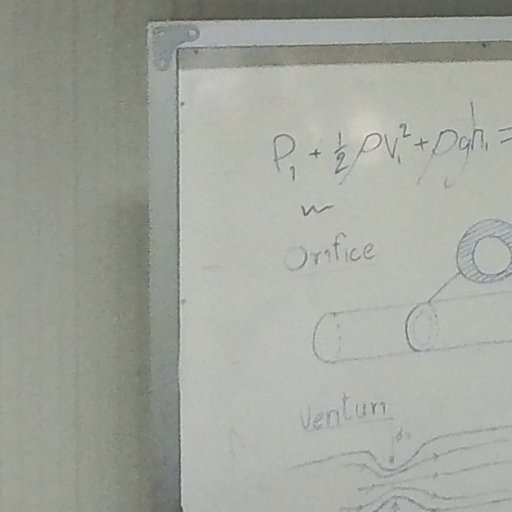 P₁ + ½ ρv₁² + ρgh₁ =
Orifice
Venturi